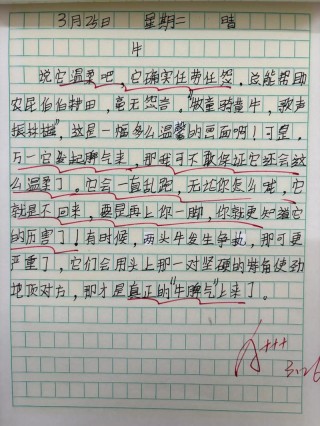 3月25日 星期二 晴
牛
说它温柔吧，它确实任劳任怨，总能帮助
农民伯伯耕田，毫无怨言。“牧童骑黄牛，歌声
振林樾”，这是一幅多么温馨的画面啊！可是，
万一它发起脾气来，那我可不敢保证它还会这
么温柔了。它会一直乱跑，无论你怎么喊，它
就是不回来，要是再上你一脚，你就更知道它
的厉害了！有时候，两头牛发生争执，那可更
严重了，它们会用头上那一对坚硬的犄角使劲
地顶对方，那才是真正的“牛脾气”上来了。
A+++
3.26